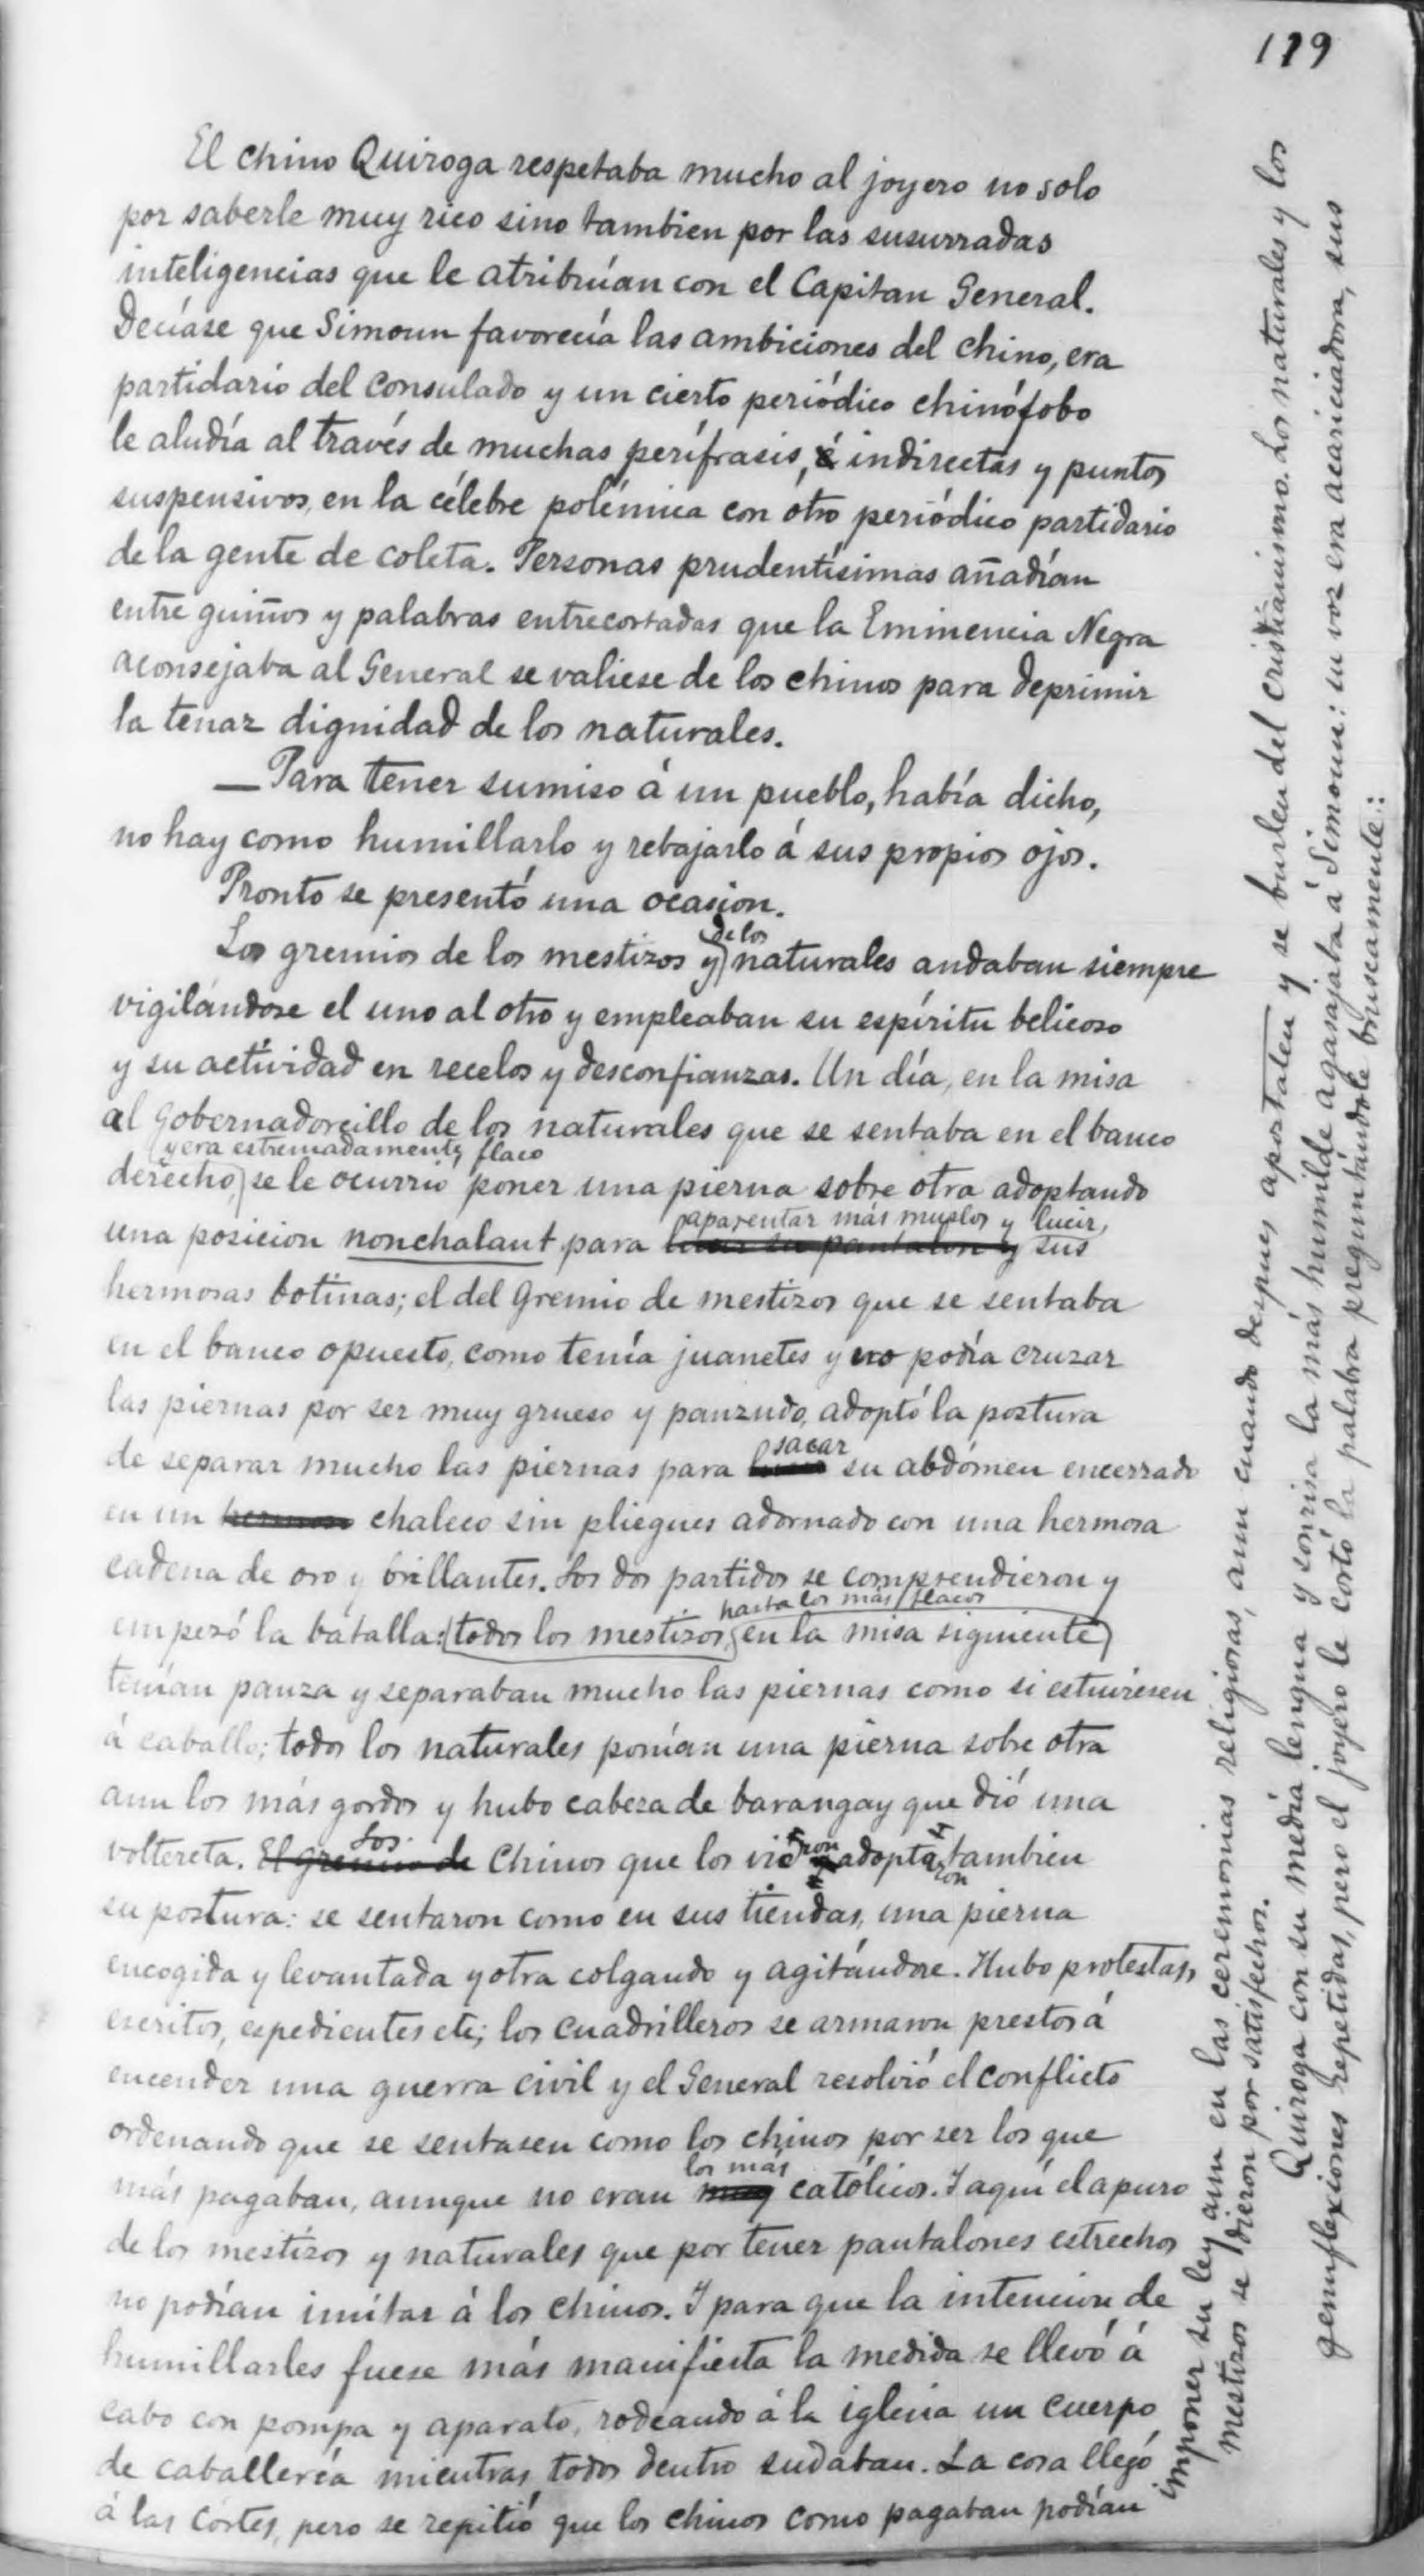 119
El chino Quiroga respetaba mucho al joyero no solo
por saberle muy rico sino tambien por las susurradas
inteligencias que le atribuían con el Capitan General.
Decíase que Simoun favorecía las ambiciones del chino, era
partidario del consulado y un cierto periódico chinófobo
le aludía al través de muchas perífrasis, é indirectas y puntos
suspensivos, en la célebre polémica con otro periódico partidario
de la gente de coleta. Personas prudentísimas añadían
entre guiños y palabras entrecortadas que la Eminencia Negra
aconsejaba al General se valiese de los chinos para deprimir
la tenaz dignidad de los naturales.
— Para tener sumiso á un pueblo, había dicho,
no hay como humillarlo y rebajarlo á sus propios ojos.
Pronto se presentó una ocasion.
Los gremios de los mestizos y de los naturales andaban siempre
vigilándose el uno al otro y empleaban su espíritu belicoso
y su actividad en recelos y desconfianzas. Un día, en la misa
al Gobernadorcillo de los naturales que se sentaba en el banco
derecho, y era estremadamente flaco se le ocurrió poner una pierna sobre otra adoptando
una posicion nonchalant para lucir su pantalon y aparentar más muslos y lucir sus
hermosas botinas; el del gremio de mestizos que se sentaba
en el banco opuesto, como tenía juanetes y no podía cruzar
las piernas por ser muy grueso y panzudo, adoptó la postura
de separar mucho las piernas para sacar su abdómen encerrado
en un hermoso chaleco sin pliegues adornado con una hermosa
cadena de oro y brillantes. Los dos partidos se comprendieron y
empezó la batalla: todos los mestizos, hasta los más flacos en la misa siguiente
tenían panza y separaban mucho las piernas como si estuviesen
á caballo; todos los naturales ponían una pierna sobre otra
aun los más gordos y hubo cabeza de barangay que dió una
voltereta. El gremio de Los Chinos que los vieron adoptaron tambien
su postura: se sentaron como en sus tiendas, una pierna
encogida y levantada y otra colgando y agitándose. Hubo protestas,
escritos, espedientes etc; los cuadrilleros se armaron prestos á
encender una guerra civil y el General resolvió el conflicto
ordenando que se sentasen como los chinos por ser los que
más pagaban, aunque no eran muy los más católicos. Y aquí el apuro
de los mestizos y naturales que por tener pantalones estrechos
no podían imitar á los chinos. Y para que la intencion de
humillarles fuese más manifiesta la medida se llevó á
cabo con pompa y aparato, rodeando á la iglesia un cuerpo
de caballería mientras todos dentro sudaban. La cosa llegó
á las Córtes, pero se repitió que los chinos como pagaban podían
imponer su ley aun en las ceremonias religiosas, aun cuando despues apostaten y se burlen del cristianismo. Los naturales y los
mestizos se dieron por satisfechos.
Quiroga con su media lengua y sonrisa la más humilde agasajaba á Simoun: su voz era acariciadora, sus
genuflexiones repetidas, pero el joyero le cortó la palabra preguntándole bruscamente: